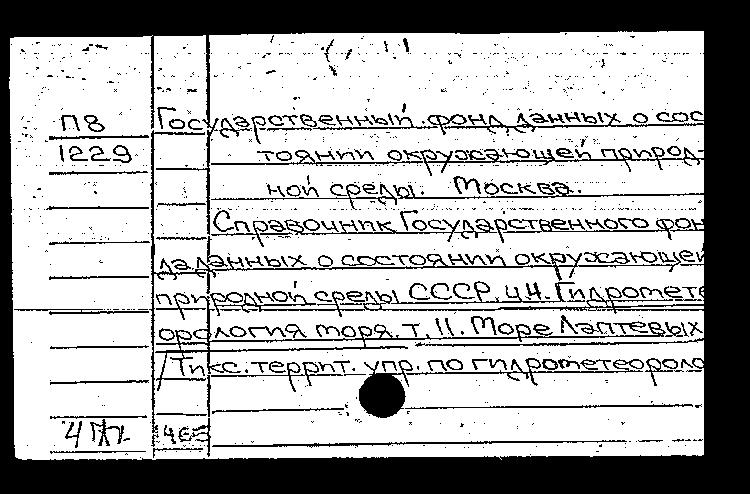 П8 Государственный фонд данных о сос
1229 тоянии окружающей природ-
ной среды. Москва.
Справочник Государственного фон
да данных о состоянии окружающей
природной среды СССР. Ч.Н. Гидромете
орология моря. т. 11. Море Лаптевых
/Тикс. террит. упр. по гидрометеороло